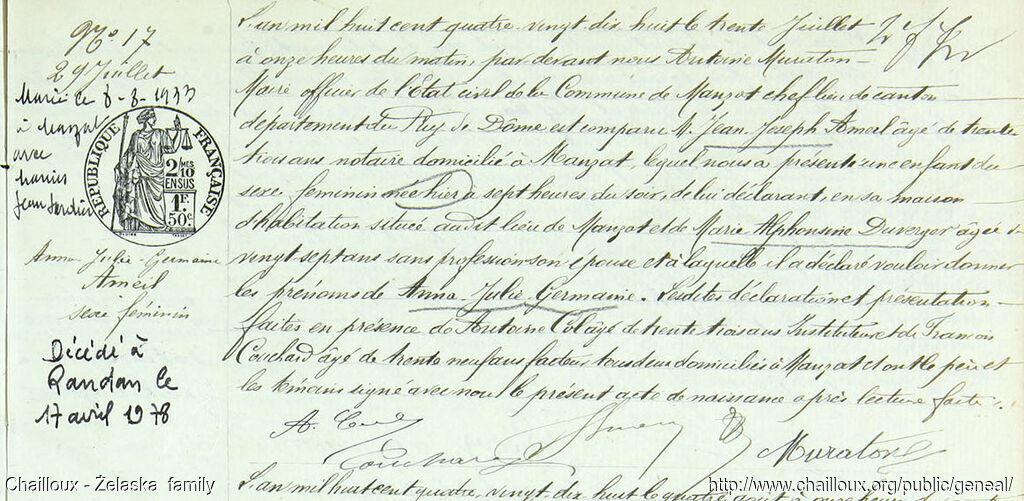 No 17
29 Juillet
Marié le 8-8-1933
à Manzat
avec
Marius
Jean Jardin
RÉPUBLIQUE FRANÇAISE
2/MES
10
EN SUS
1F.
50c
Anna Julie Germaine
Ameil
sexe féminin
Décédé à
Randan le
17 avril 1978
L'an mil huit cent quatre vingt dix huit le trente Juillet
à onze heures du matin, par devant nous Antoine Muraton
Maire officier de l'État civil de la Commune de Manzat chef lieu de canton
département du Puy de Dôme est comparu M. Jean Joseph Ameil âgé de trente
trois ans notaire domicilié à Manzat, lequel nous a présenté une enfant du
sexe féminin née hier à sept heures du soir, de lui déclarant, en sa maison
d'habitation située audit lieu de Manzat et de Marie Alphonsine Duverger âgée de
vingt sept ans sans profession son épouse et à laquelle il a déclaré vouloir donner
les prénoms de Anna Julie Germaine. Lesdites déclaration et présentation
faites en présence de Antoine Col âgé de trente trois ans Instituteur et de François
Couchard âgé de trente neuf ans facteur tous deux domiciliés à Manzat et ont le père et
les témoins signé avec nous le présent acte de naissance après lecture faite.
A. Col
Couchard
Ameil
Muraton
L'an mil huit cent quatre vingt dix huit le quatre août à onze heures du
Chailloux - Żelaska family
http://www.chailloux.org/public/geneal/